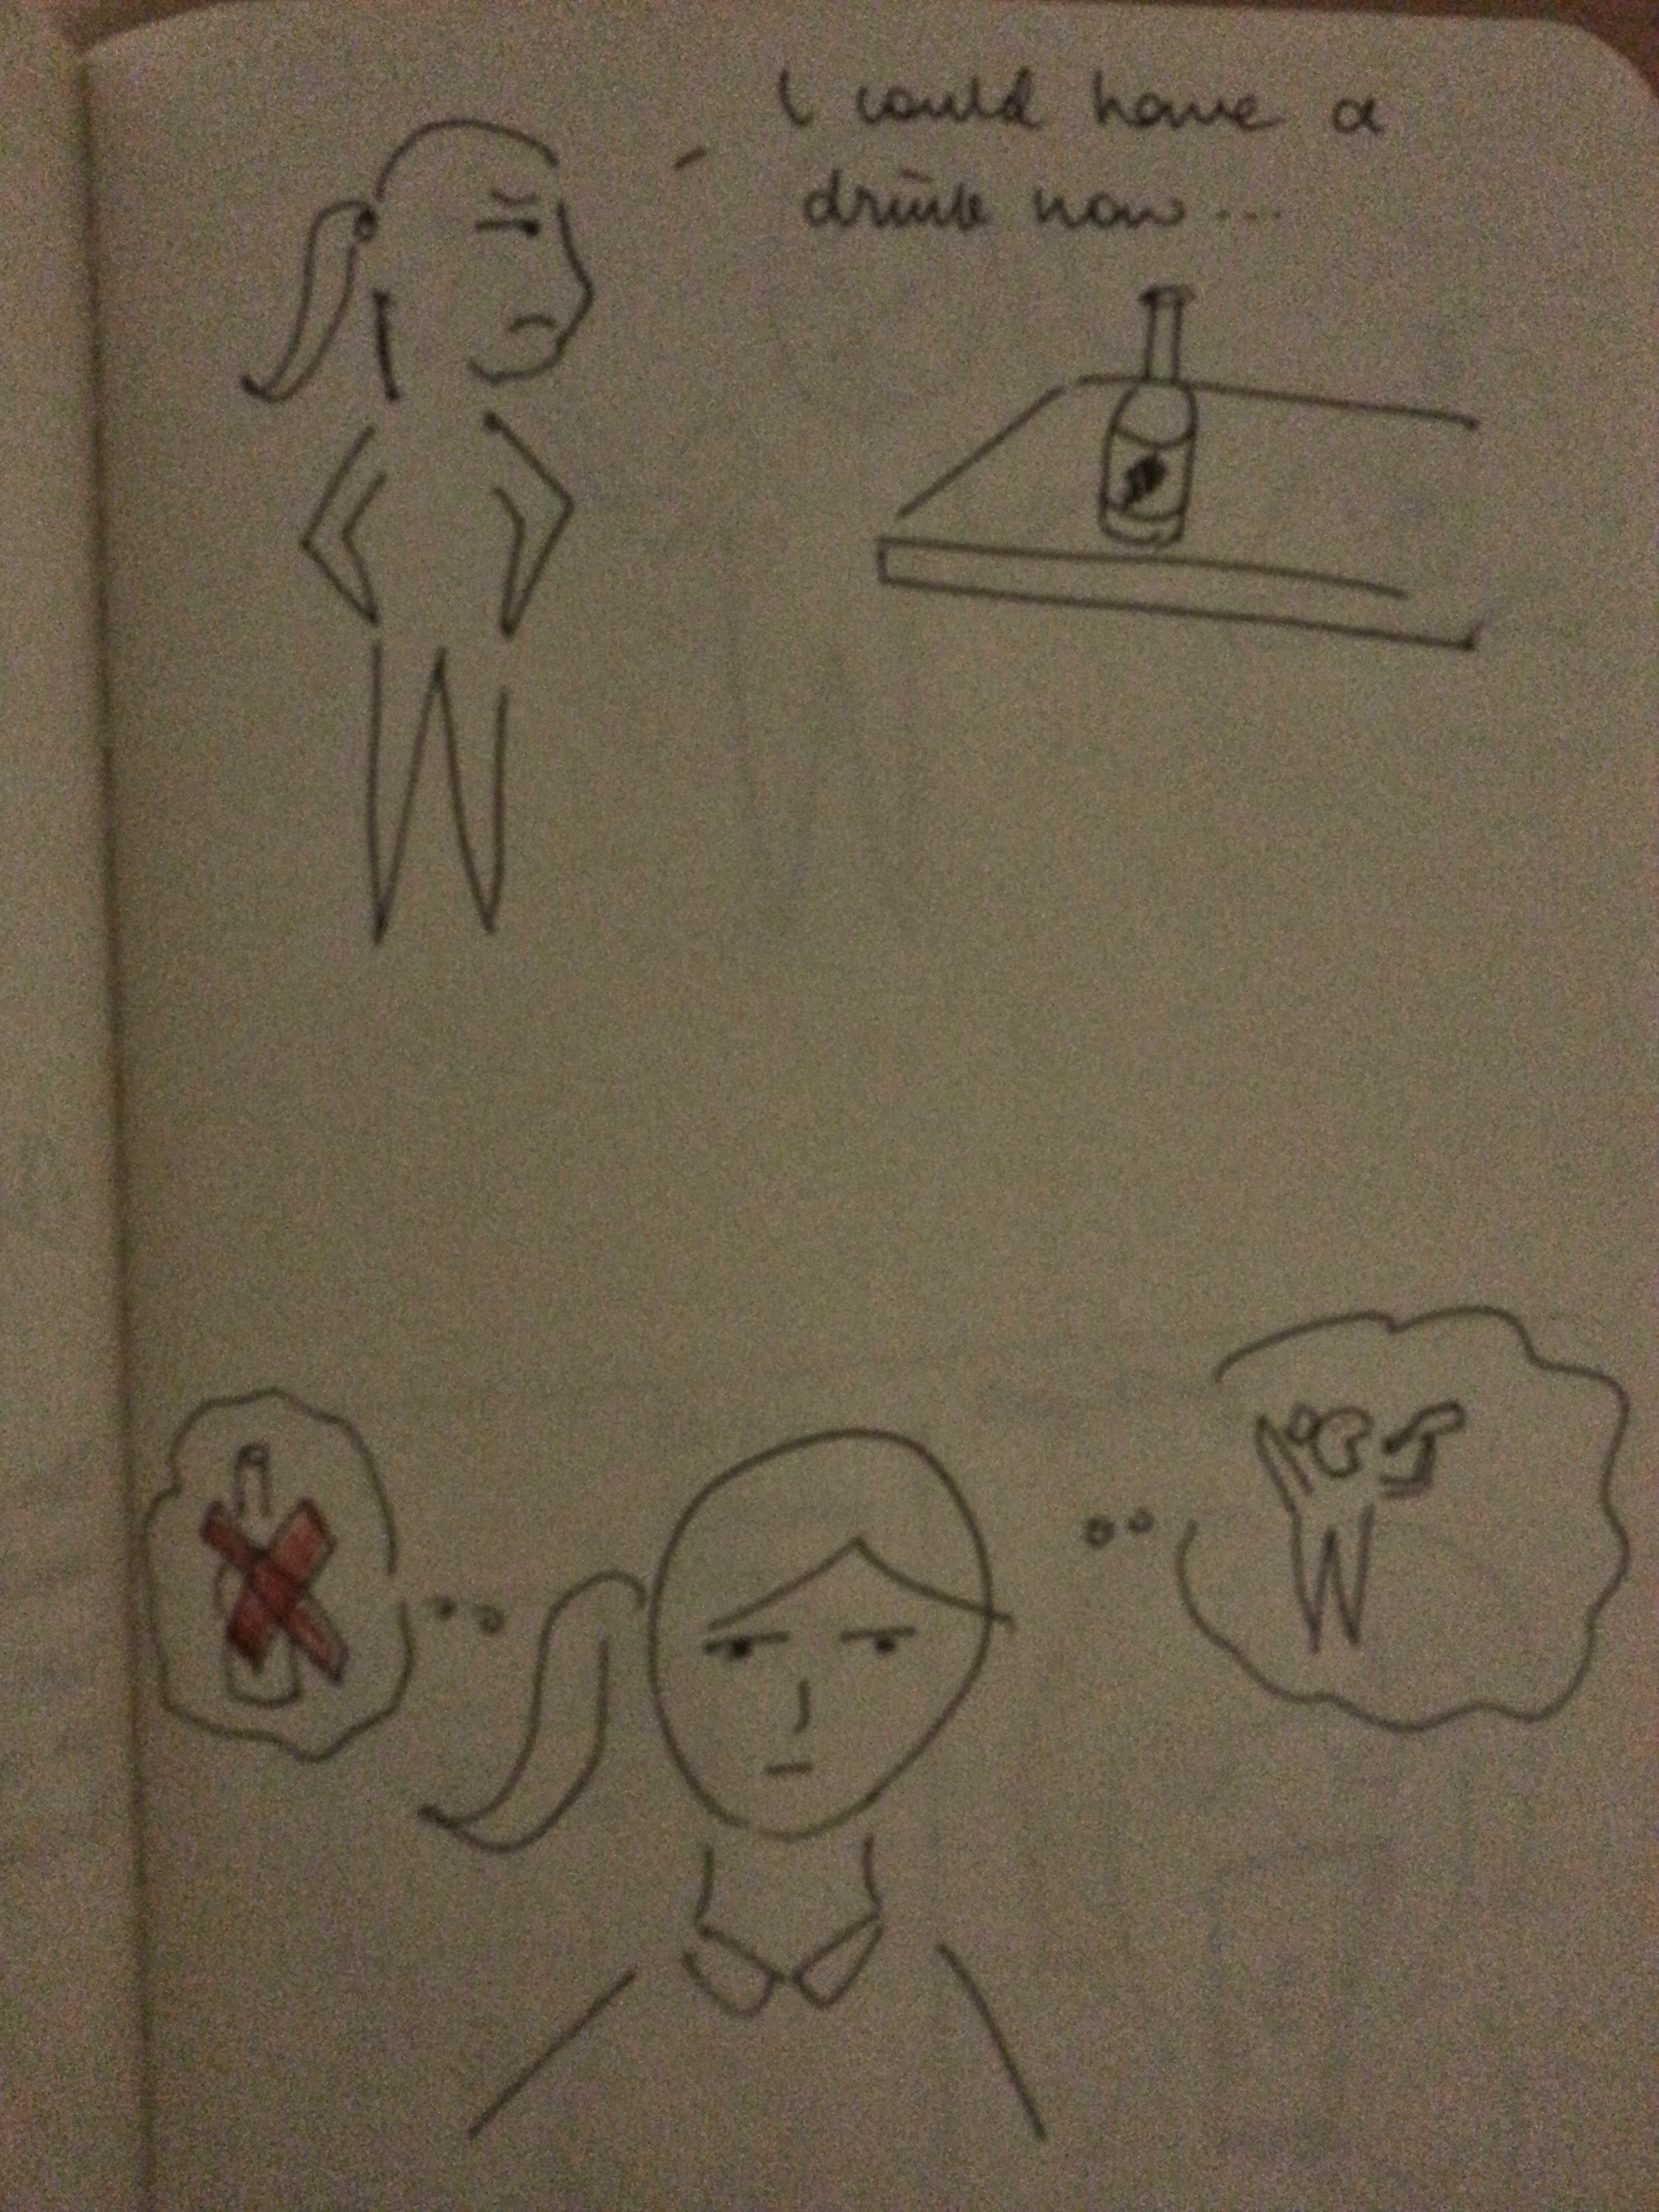 I could have a
drink now...